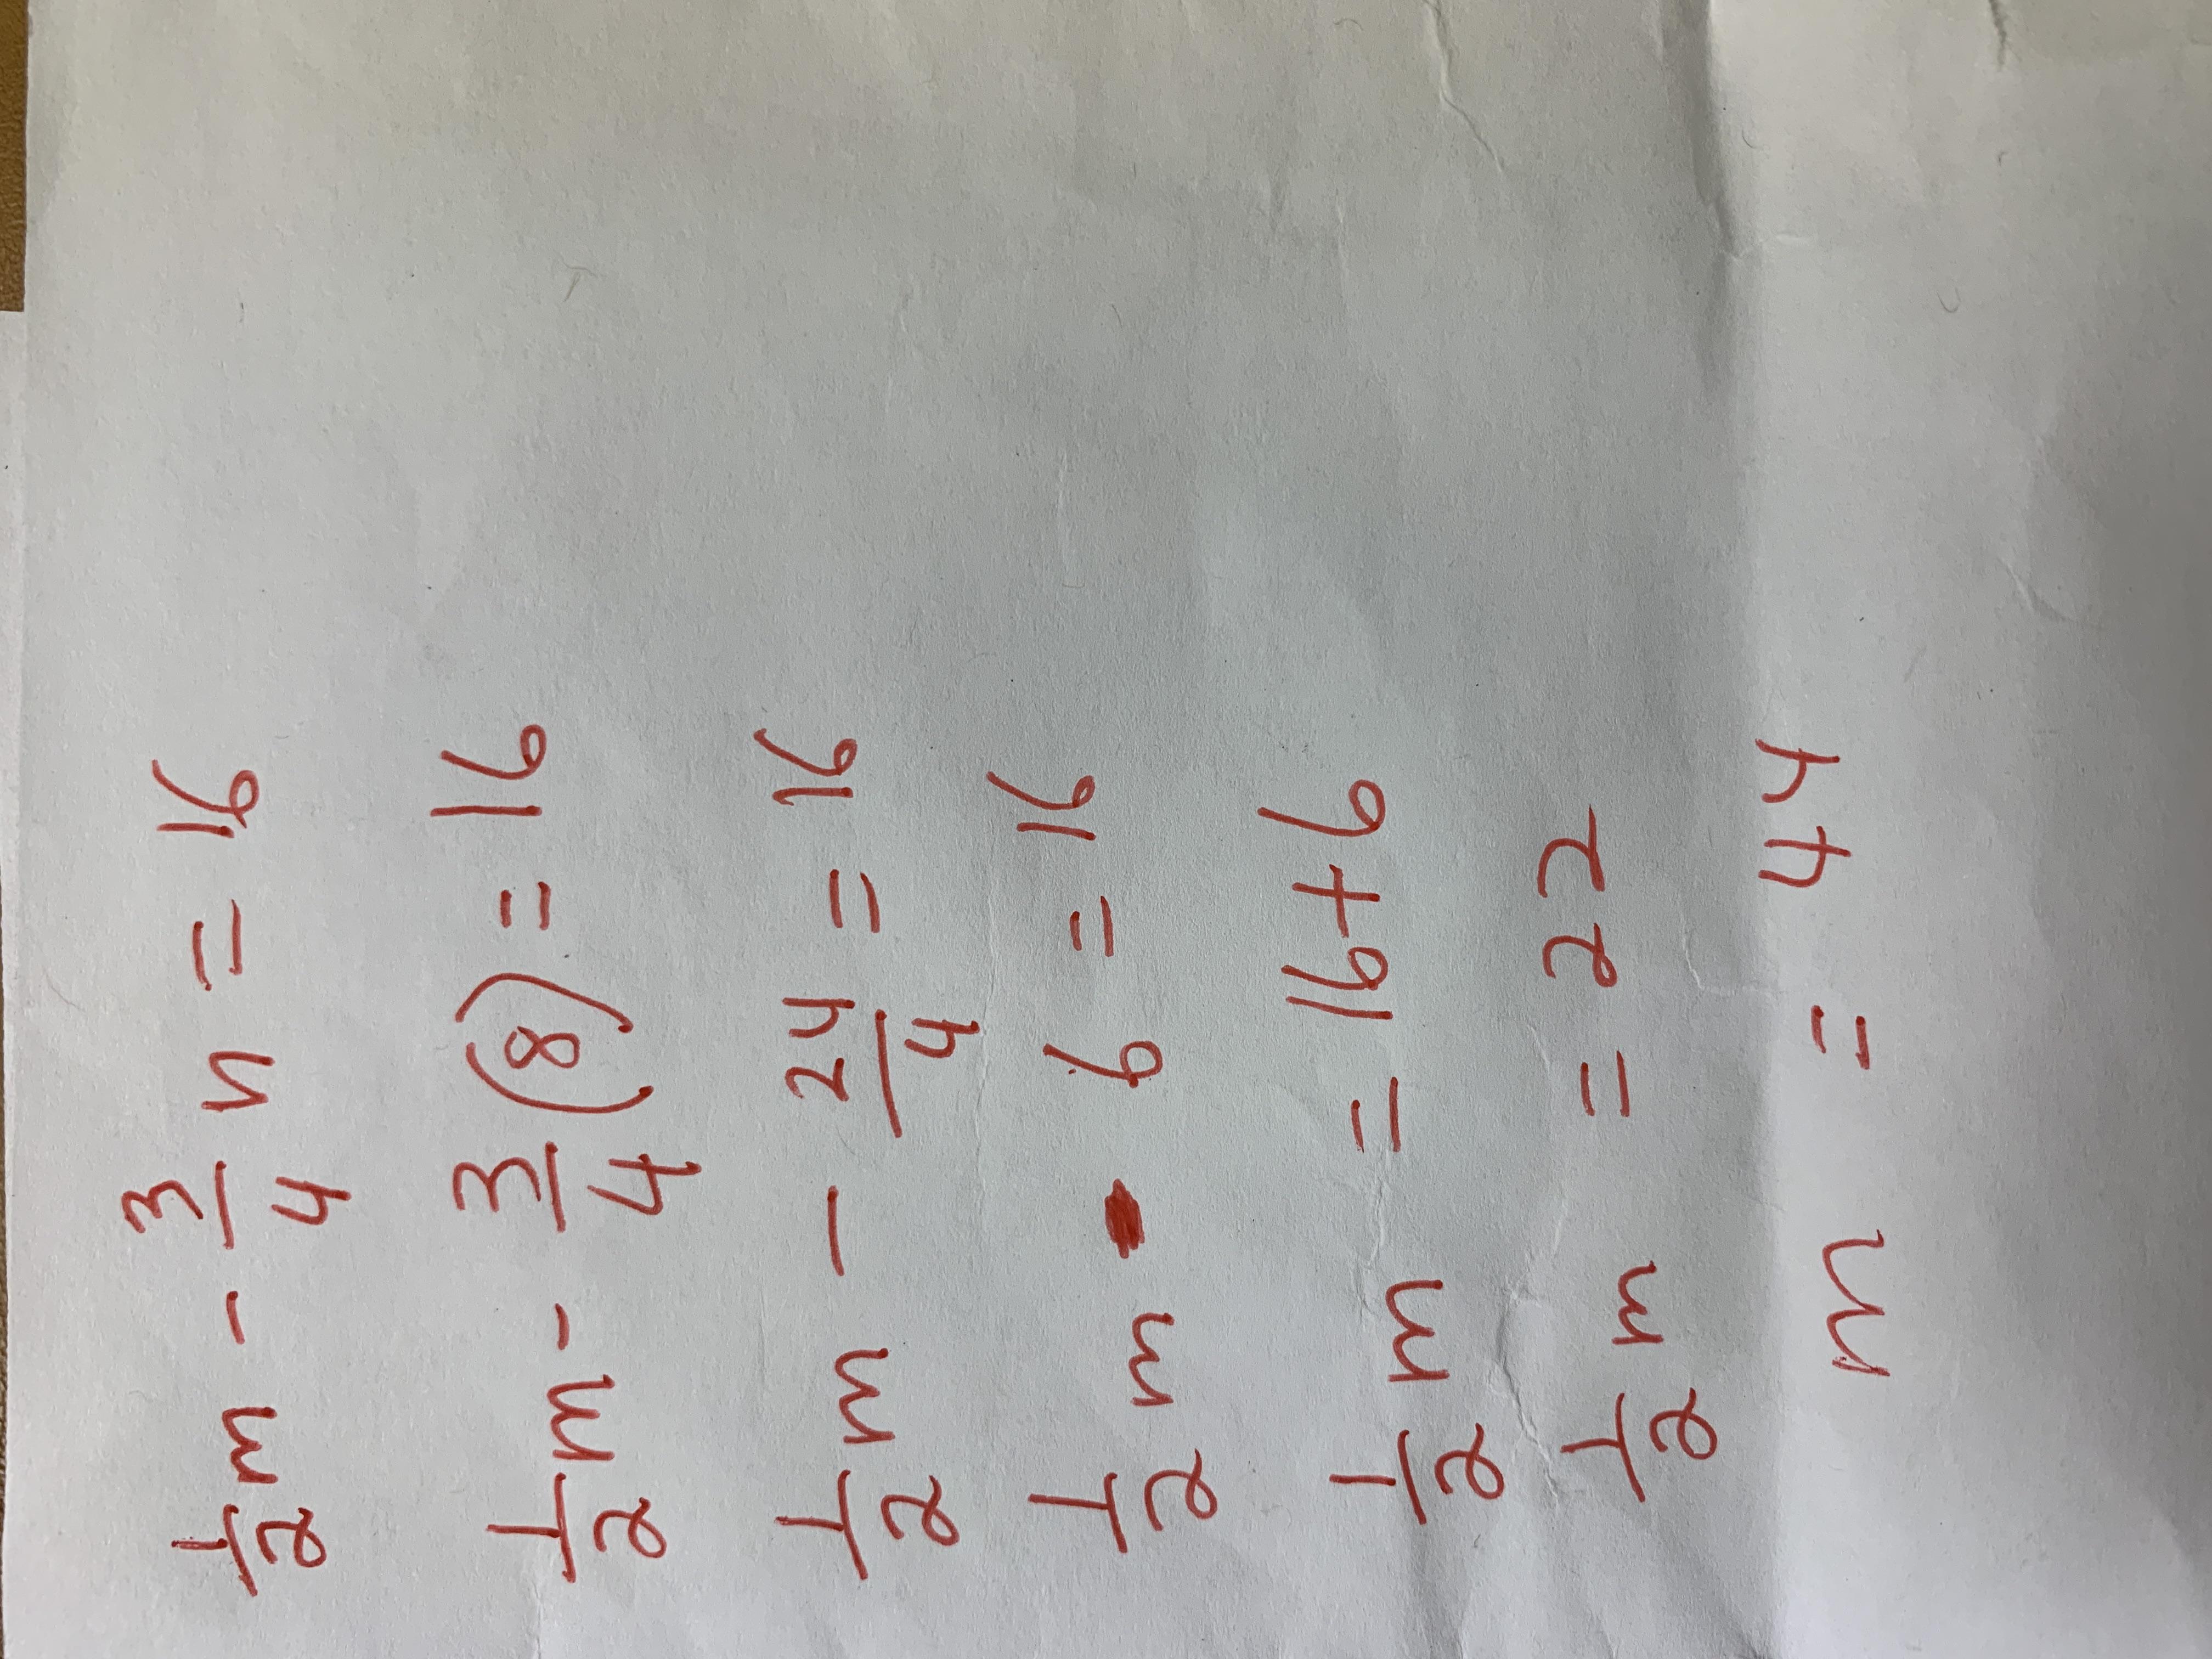 1/2 m - 3/4 n = 16
1/2 m - 3/4 (8) = 16
1/2 m - 24/4 = 16
1/2 m - 6 = 16
1/2 m = 16 + 6
1/2 m = 22
m = 44